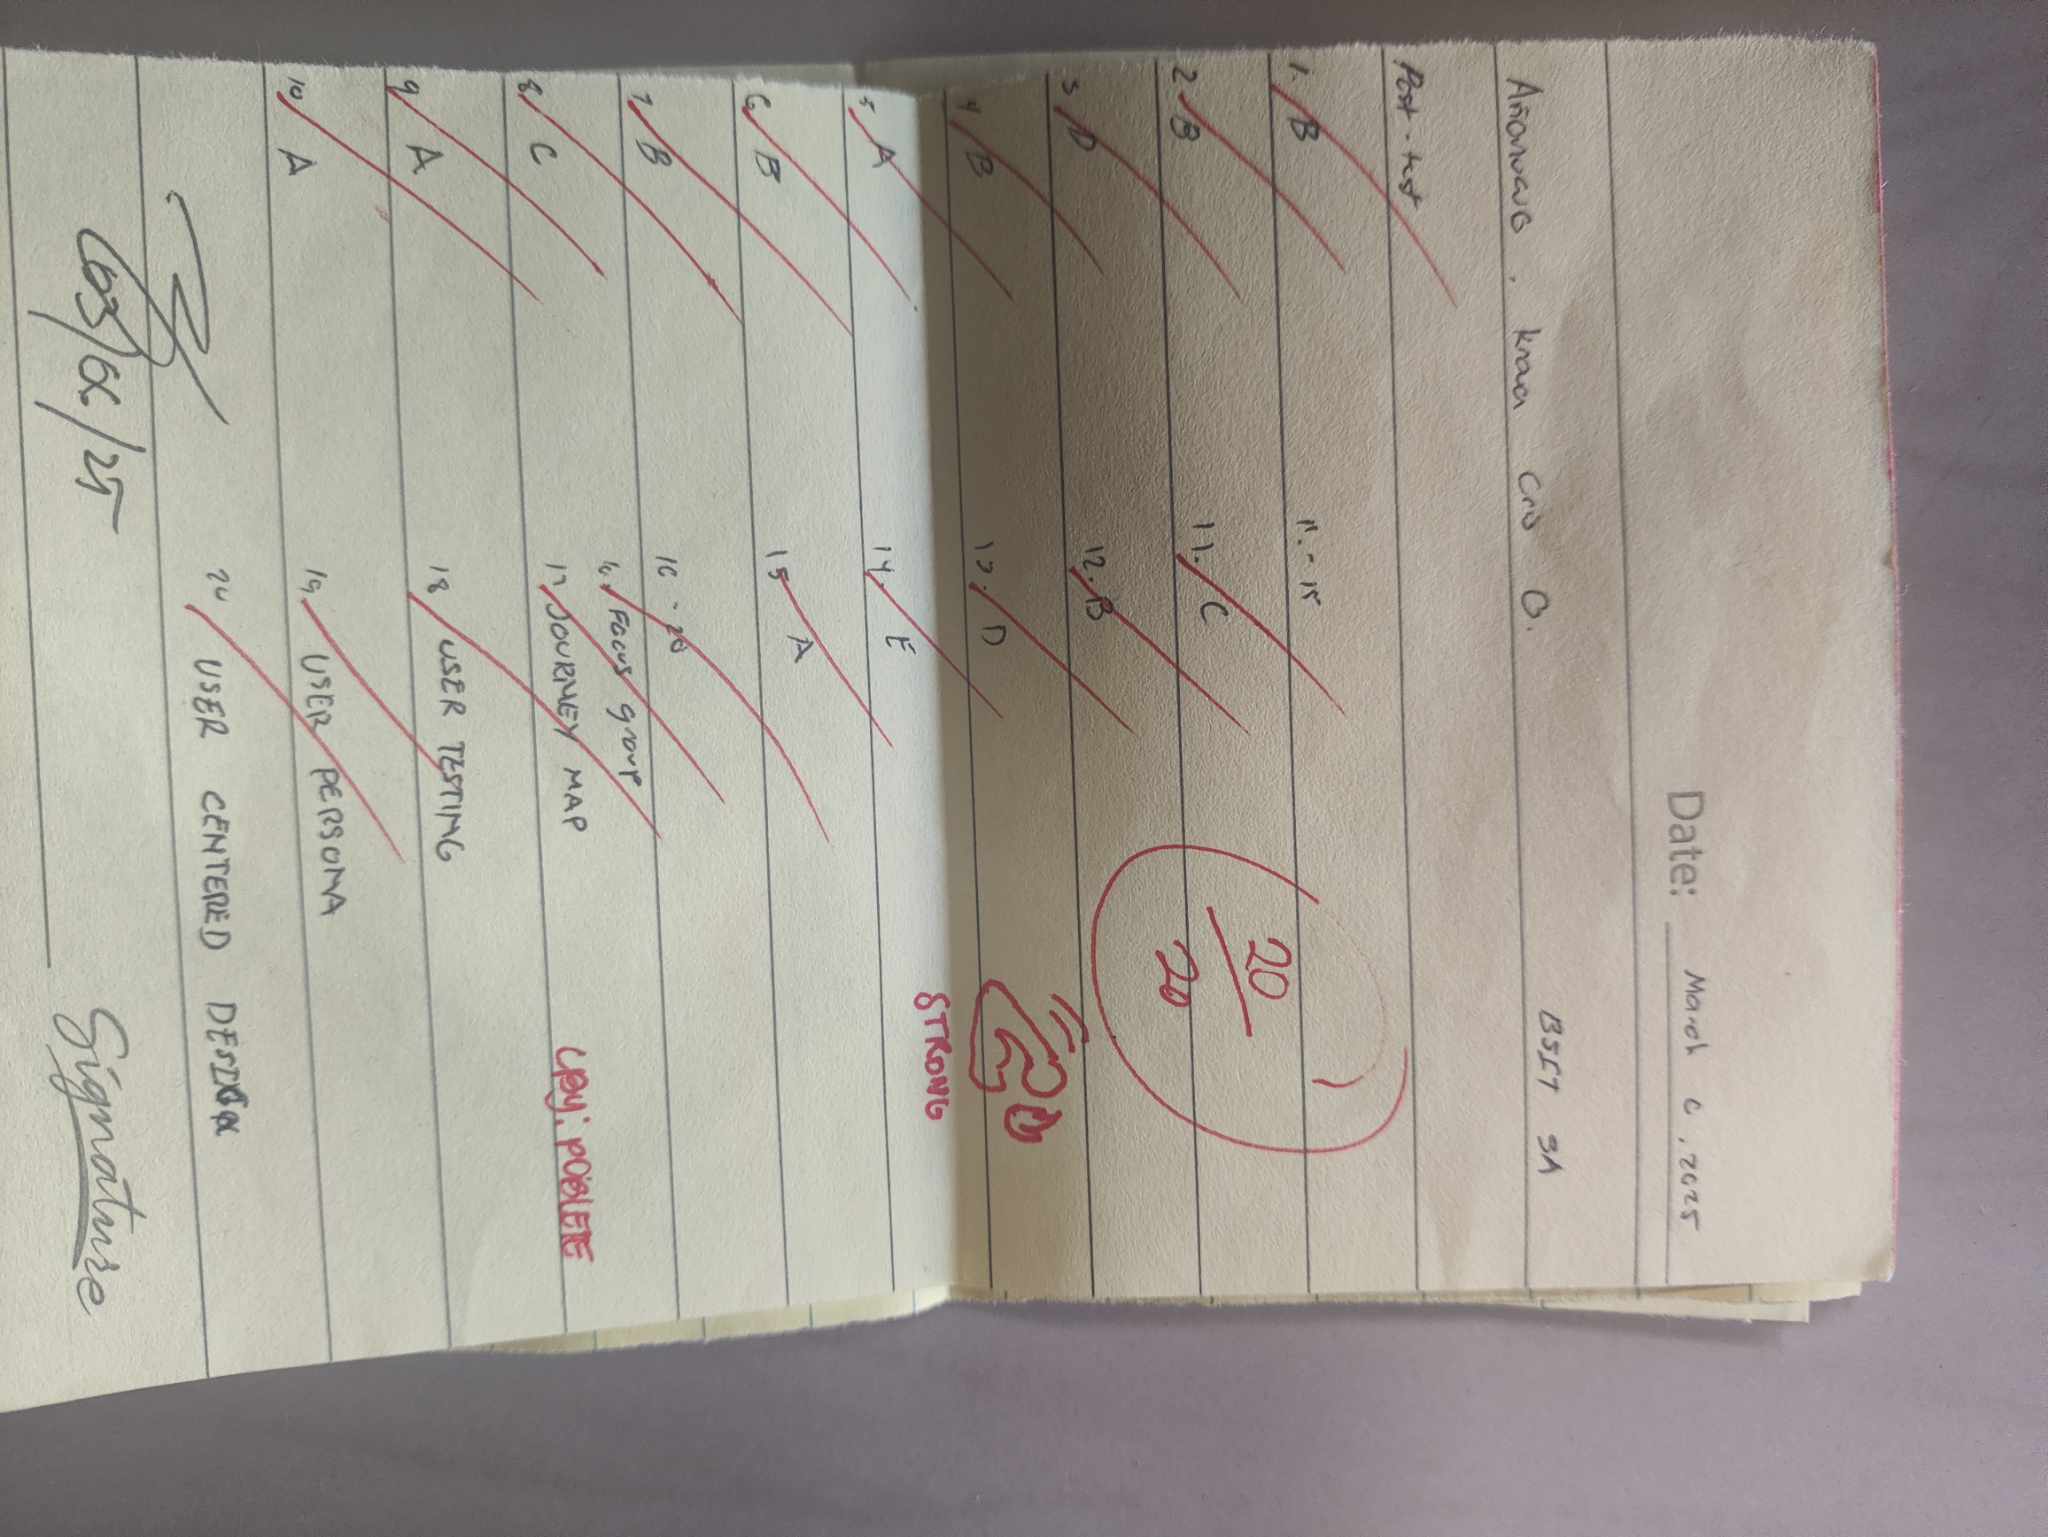 Date: March 6, 2025
BSIT 3A
Post-test
1. B
2. B
3. D
4. B
5. A
6. B
7. B
8. C
9. A
10. A
11.-15
11. C
12. B
13. D
14. E
15 A
16-20
16. Focus group
17 JOURNEY MAP
18 USER TESTING
19. USER PERSONA
20 USER CENTERED DESIGN
20
20
STRONG
03/06/25
Signature